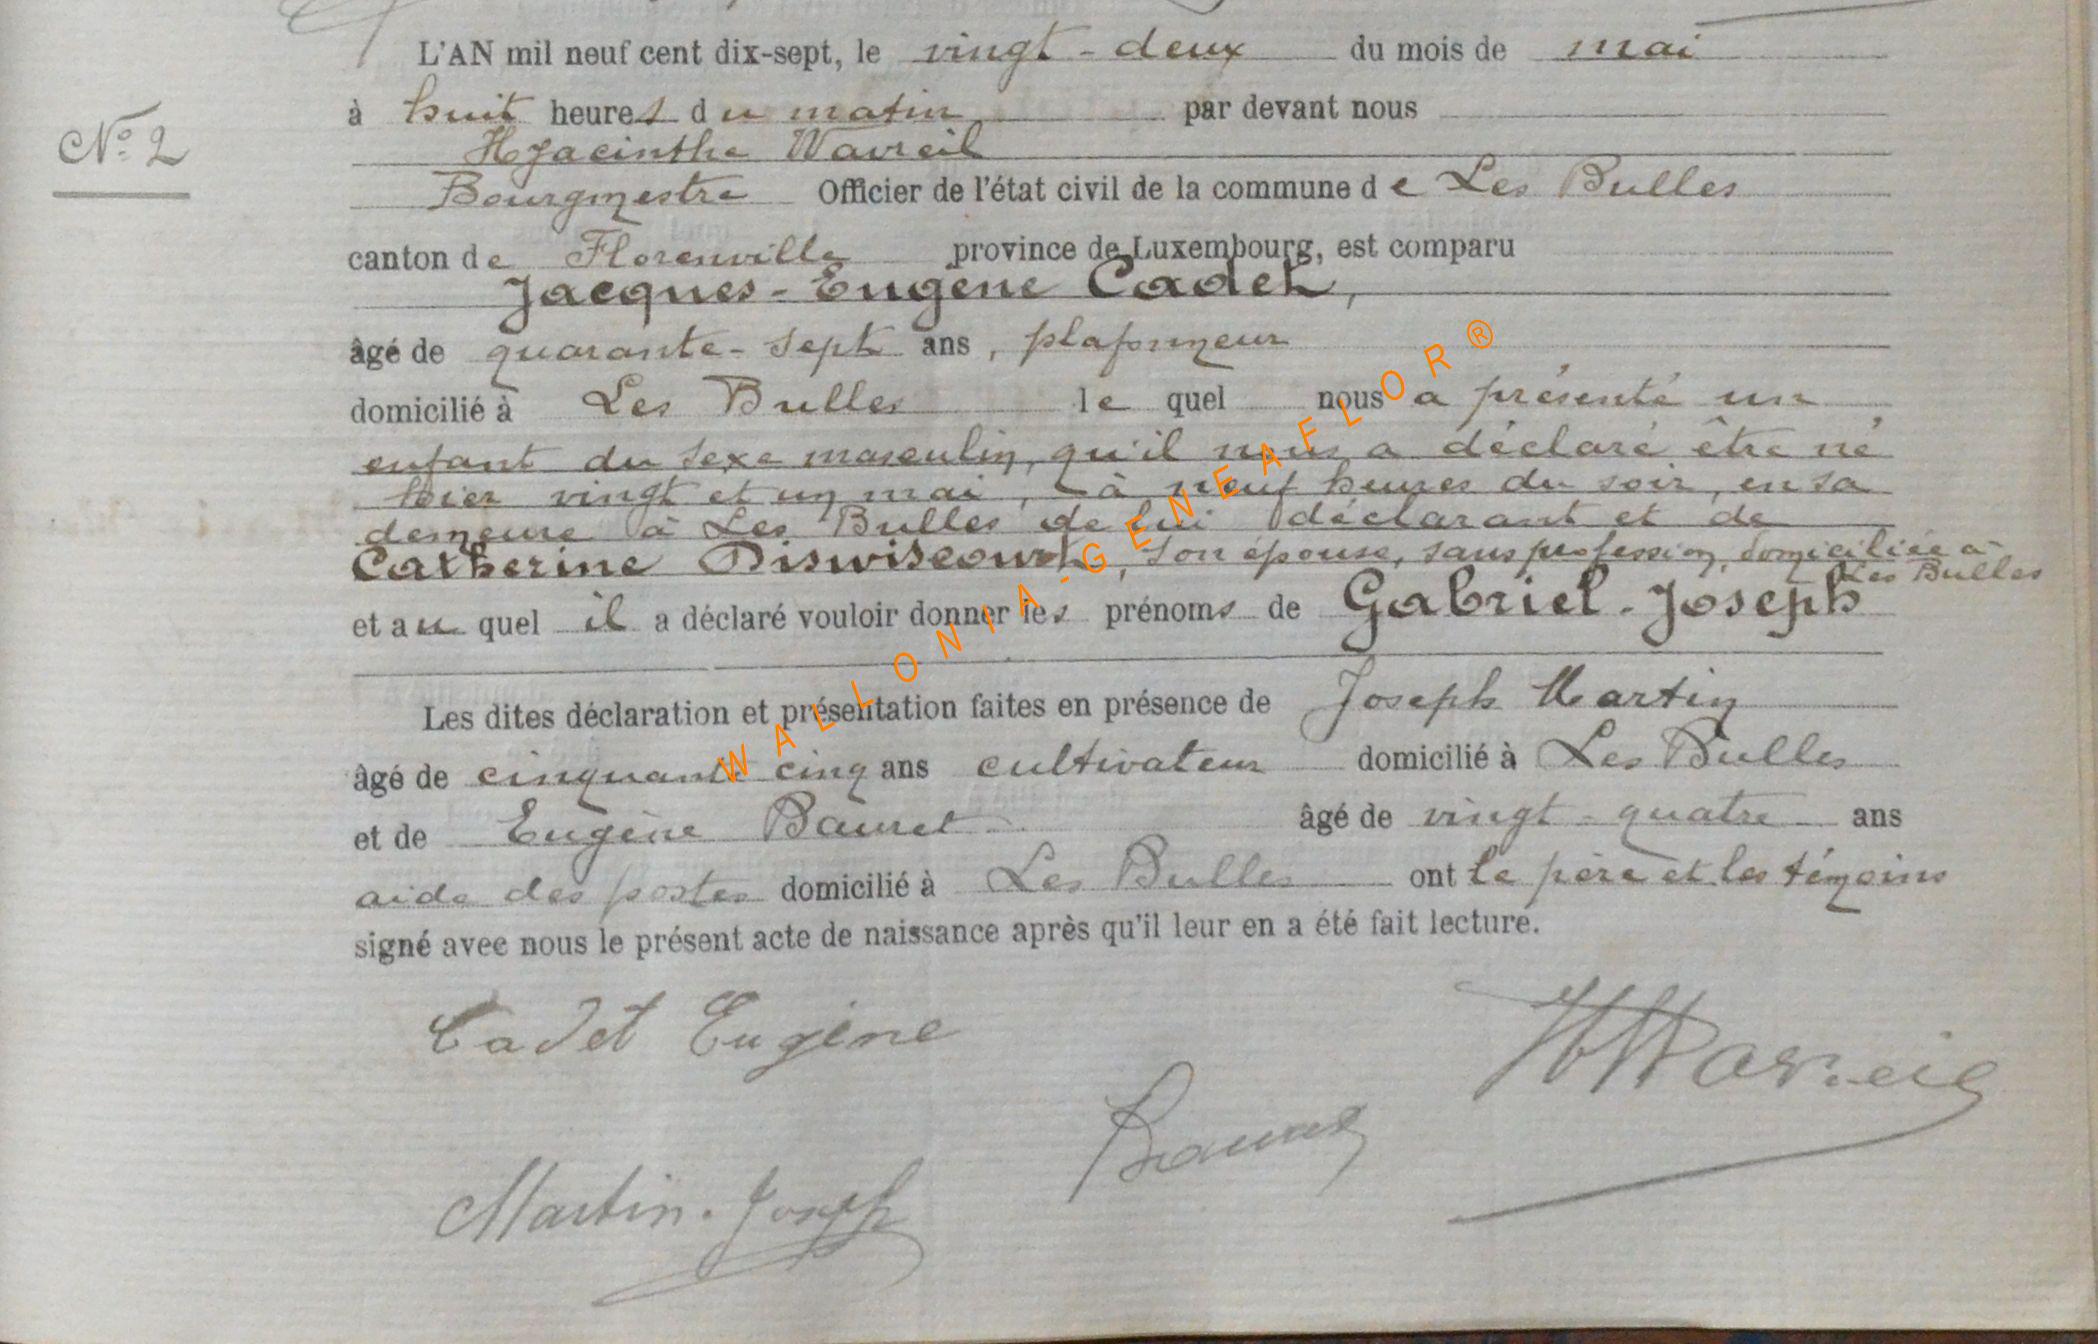 L'AN mil neuf cent dix-sept, le vingt-deux du mois de mai
N° 2
à huit heures du matin par devant nous
Hyacinthe Wavreil
Bourgmestre Officier de l'état civil de la commune de Les Bulles
canton de Florenville province de Luxembourg, est comparu
Jacques-Eugène Cadet,
âgé de quarante-sept ans, plafonneur
domicilié à Les Bulles le quel nous a présenté un
enfant du sexe masculin, qu'il nous a déclaré être né
hier vingt et un mai, à neuf heures du soir, en sa
demeure à Les Bulles de lui déclarant et de
Catherine Diswiscourt, son épouse, sans profession, domiciliée à
Les Bulles
et au quel il a déclaré vouloir donner les prénoms de Gabriel-Joseph
Les dites déclaration et présentation faites en présence de Joseph Martin
âgé de cinquante cinq ans cultivateur domicilié à Les Bulles
et de Eugène Bauret âgé de vingt-quatre ans
aide des postes domicilié à Les Bulles ont le père et les témoins
signé avec nous le présent acte de naissance après qu'il leur en a été fait lecture.
Cadet Eugène
HWavreil
Bauret
Martin. Joseph
WALLONIA-GENEAFLOR®